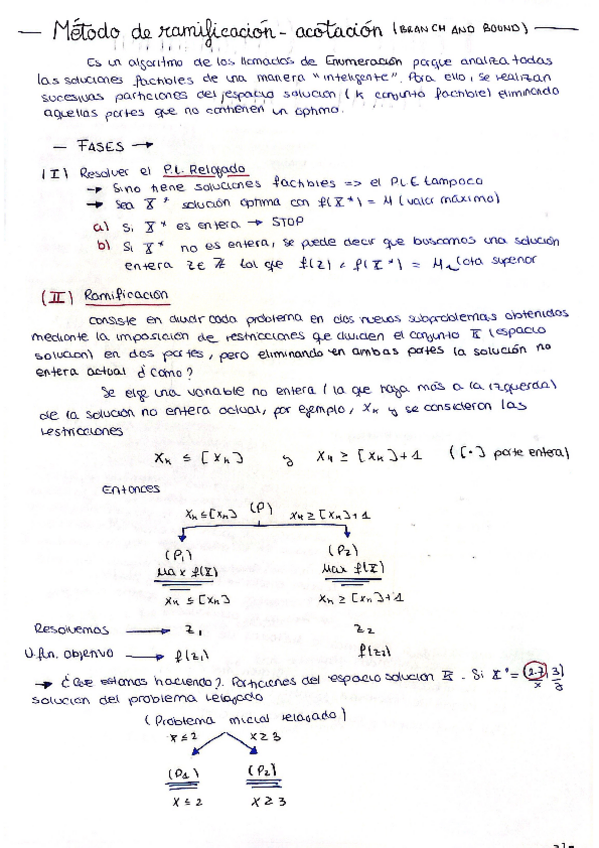 Método de ramificación - acotación (BRANCH AND BOUND)
Es un algoritmo de los llamados de Enumeración porque analiza todas
las soluciones factibles de una manera "inteligente". Para ello, se realizan
sucesivas particiones del espacio solución (k conjunto factible) eliminando
aquellas partes que no contienen un óptimo.
— FASES →
(I) Resolver el P.L. Relajado
→ Si no tiene soluciones factibles => el PLE tampoco
→ Sea X* solución óptima con f(X*) = M (valor máximo)
a) Si X* es entera → STOP
b) Si X* no es entera, se puede decir que buscamos una solución
entera z∈Z tal que f(z) < f(X*) = M cota superior
(II) Ramificación
Consiste en dividir cada problema en dos nuevos subproblemas obtenidos
mediante la imposición de restricciones que dividen el conjunto X (espacio
solución) en dos partes, pero eliminando en ambas partes la solución no
entera actual ¿cómo?
Se elige una variable no entera (la que haya más a la izquierda)
de la solución no entera actual, por ejemplo, xₖ y se consideran las
restricciones
xₖ ≤ [xₖ] y xₖ ≥ [xₖ]+1 ([•] parte entera)
Entonces
xₖ≤[xₖ] (P) xₖ≥[xₖ]+1
(P₁) (P₂)
Max f(X) Max f(X)
xₖ ≤ [xₖ] xₖ ≥ [xₖ]+1
Resolvemos → z₁ z₂
V.fn. objetivo → f(z₁) f(z₂)
→ ¿Qué estamos haciendo?. Particiones del espacio solución X. Si X* = (2.7, 3)
x y
solución del problema relajado
(Problema inicial relajado)
x≤2 x≥3
(P1) (P2)
x≤2 x≥3